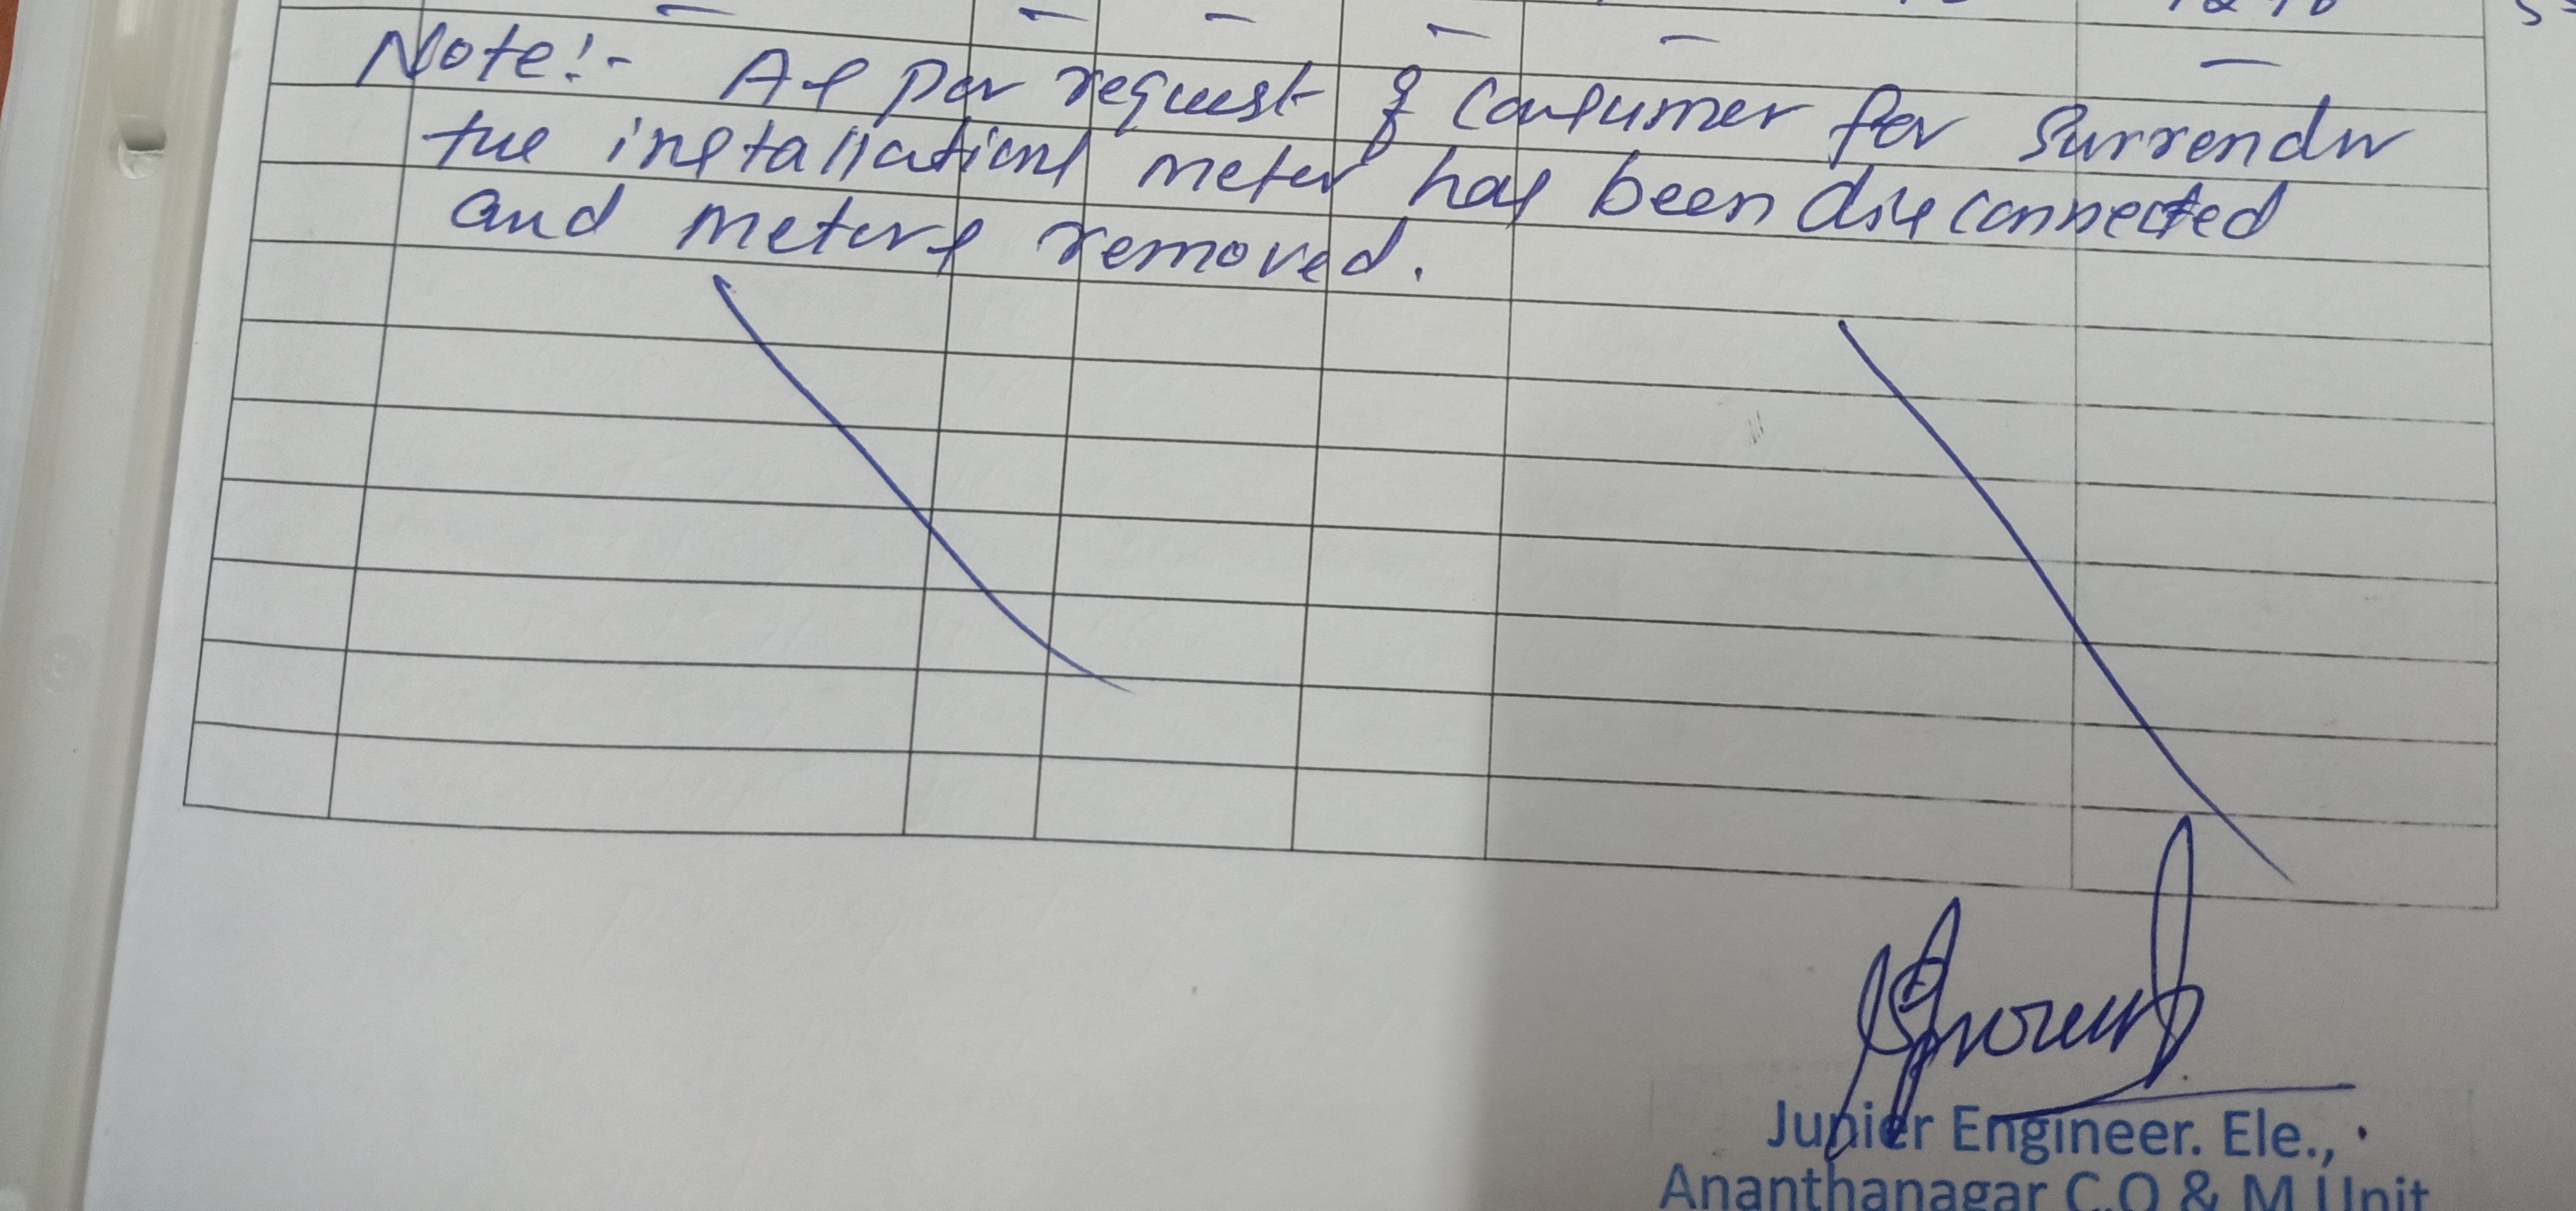 Note:- As per request of consumer for surrender
the installations meter has been disconnected
and meters removed.
Junier Engineer. Ele.,
Ananthanagar C,O & M Unit